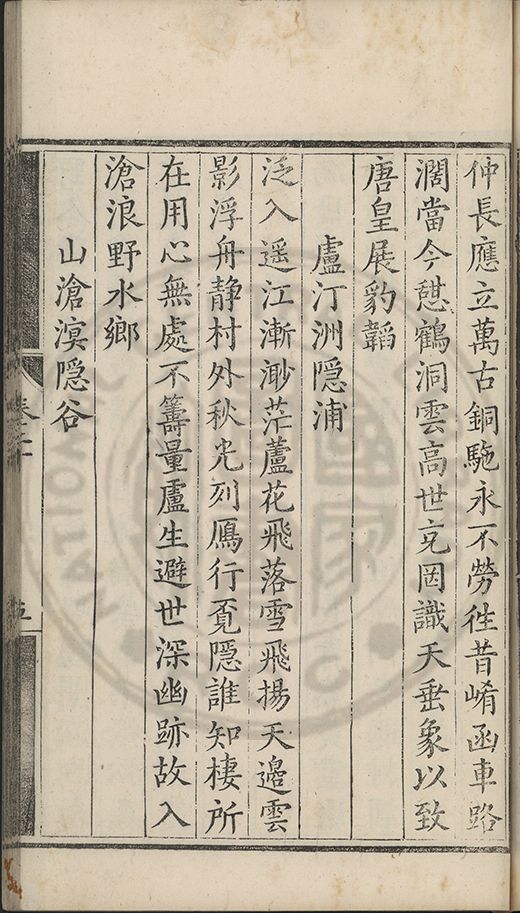 仲長應立萬古銅駞永不勞徃昔崤函車路
濶當今憇鶴洞雲高世克罔識天垂象以致
唐皇展豹韜
盧汀洲隠浦
泛入遥江漸渺茫蘆花飛落雪飛揚天邉雲
影浮舟静村外秋光列鴈行覔隠誰知棲所
在用心無處不籌量盧生避世深幽跡故入
滄浪野水鄉
山滄溟隠谷
五